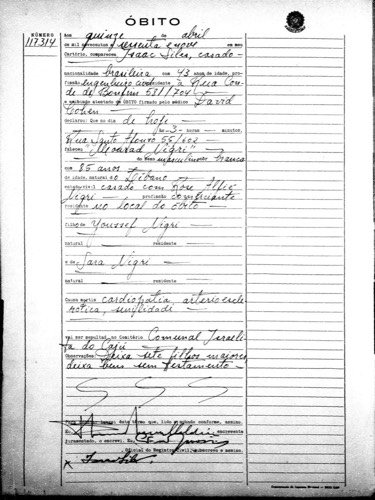 ÓBITO
NÚMERO
117.314
Aos quinze de abril
de mil novecentos e sessenta e nove em meu
Cartório, compareceu Isaac Siles, casado
nacionalidade brasileira com 43 anos de idade, pro-
fissão engenheiro residente à Rua Con-
de de Bonfim 531/704
e exibindo atestado de ÓBITO firmado pelo médico David
Cohen
declarou: Que no dia de hoje
às -3- horas — minutos,
Rua Santo Afonso 55/602
faleceu "Mourad Nigri"
do sexo masculino branca
com 85 anos
de idade, natural do Líbano
estado civil casado com
Nigri profissão comerciante
residente no local do óbito
filho de Youssef Nigri
natural — residente
e de
Sara Nigri
natural — residente
Causa mortis cardiopatia arterioscle-
rótica, senilidade
vai ser sepultado no Cemitério Comunal Israeli-
ta do Cajú
Observações: Deixa sete filhos maiores
deixa bens sem testamento
este termo que, lido e achado conforme, assino.
Eu, escrevente
juramentado, o escrevi. Eu,
Oficial do Registro Civil, subscrevo e assino.